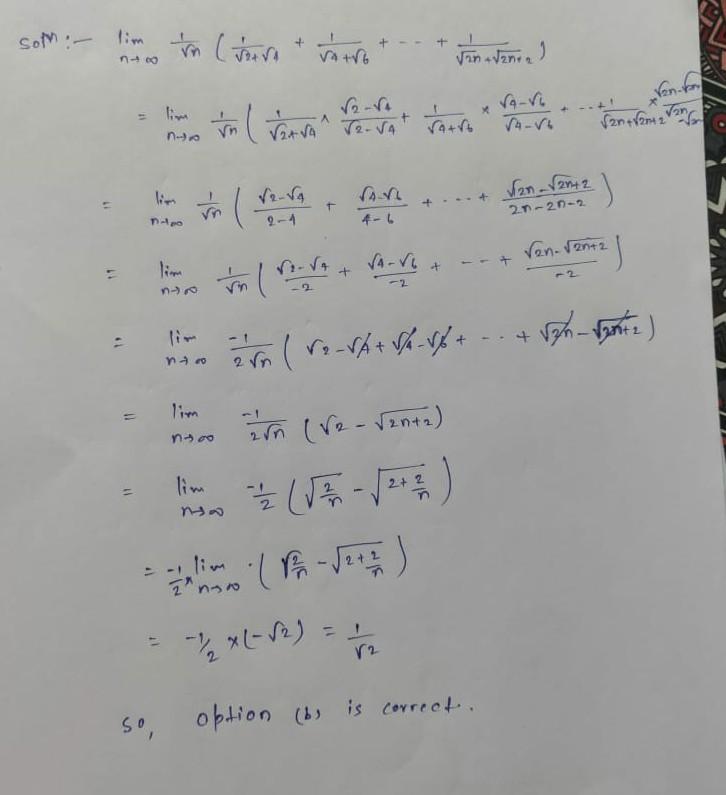 Soln:- lim n→∞ 1/√n ( 1/(√2+√4) + 1/(√4+√6) + -- + 1/(√2n+√2n+2) )
= lim n→∞ 1/√n ( 1/(√2+√4) × (√2-√4)/(√2-√4) + 1/(√4+√6) × (√4-√6)/(√4-√6) + --+ 1/(√2n+√2n+2) × (√2n-√2n)/(√2n-√2n)
= lim n→∞ 1/√n ( (√2-√4)/(2-4) + (√4-√6)/(4-6) + ---+ (√2n-√2n+2)/(2n-2n-2) )
= lim n→∞ 1/√n ( (√2-√4)/-2 + (√4-√6)/-2 + --+ (√2n-√2n+2)/-2 )
= lim n→∞ -1/2√n ( √2-√4+√4-√6+ --+ √2n-√2n+2 )
= lim n→∞ -1/2√n (√2 - √2n+2)
= lim n→∞ -1/2 ( √2/n - √2+2/n )
= -1/2 × lim n→∞ · ( √2/n - √2+2/n )
= -1/2 ×(-√2) = 1/√2
So, option (b) is correct.